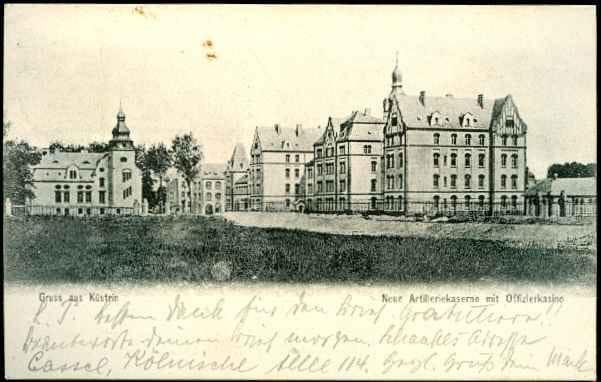 Gruss aus Küstrin
Neue Artilleriekaserne mit Offizierkasino
besten Dank für den Brief. Gratuliere!!
Beantworte deinen Brief morgen. Adresse
Cassel, Kölnische Allee 114. Herzl. Gruß Dein